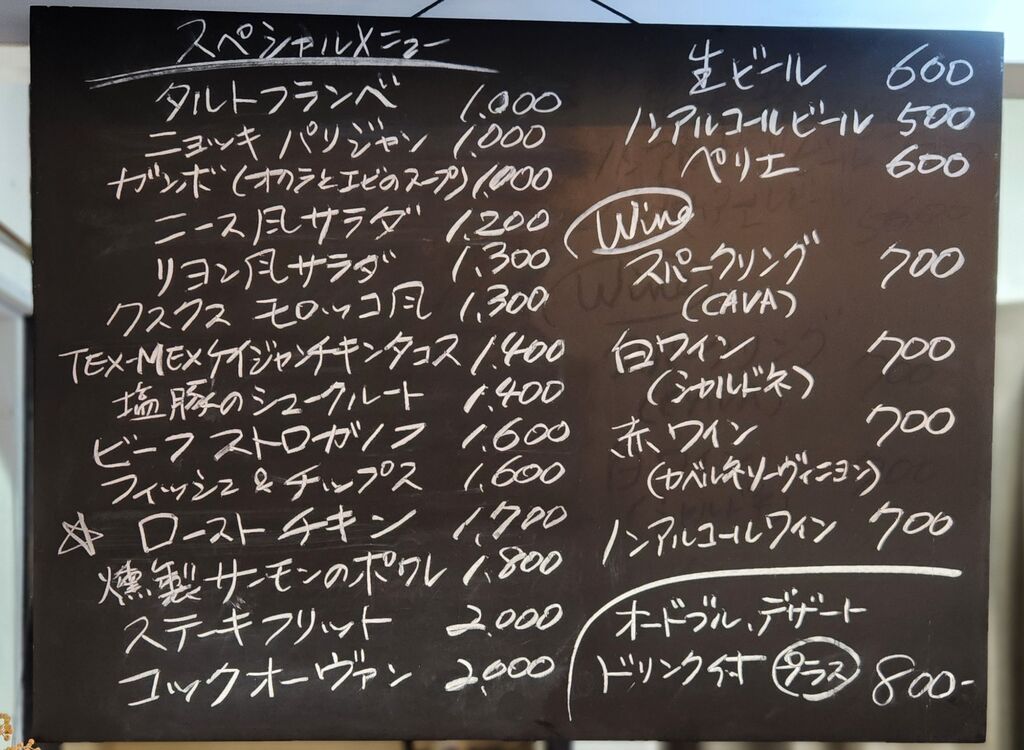 スペシャルメニュー
タルトフランベ 1,000
ニョッキ パリジャン 1,000
ガンボ(オクラとエビのスープ) 1,000
ニース風サラダ 1,200
リヨン風サラダ 1,300
クスクス モロッコ風 1,300
TEX-MEXケイジャンチキンタコス 1,400
塩豚のシュークルート 1,400
ビーフストロガノフ 1,600
フィッシュ&チップス 1,600
☆ローストチキン 1,700
燻製サーモンのポワレ 1,800
ステーキフリット 2,000
コックオーヴァン 2,000
生ビール 600
ノンアルコールビール 500
ペリエ 600
Wine
スパークリング 700
(CAVA)
白ワイン 700
(シャルドネ)
赤ワイン 700
(カベルネソーヴィニヨン)
ノンアルコールワイン 700
オードブル、デザート
ドリンク付 プラス 800-